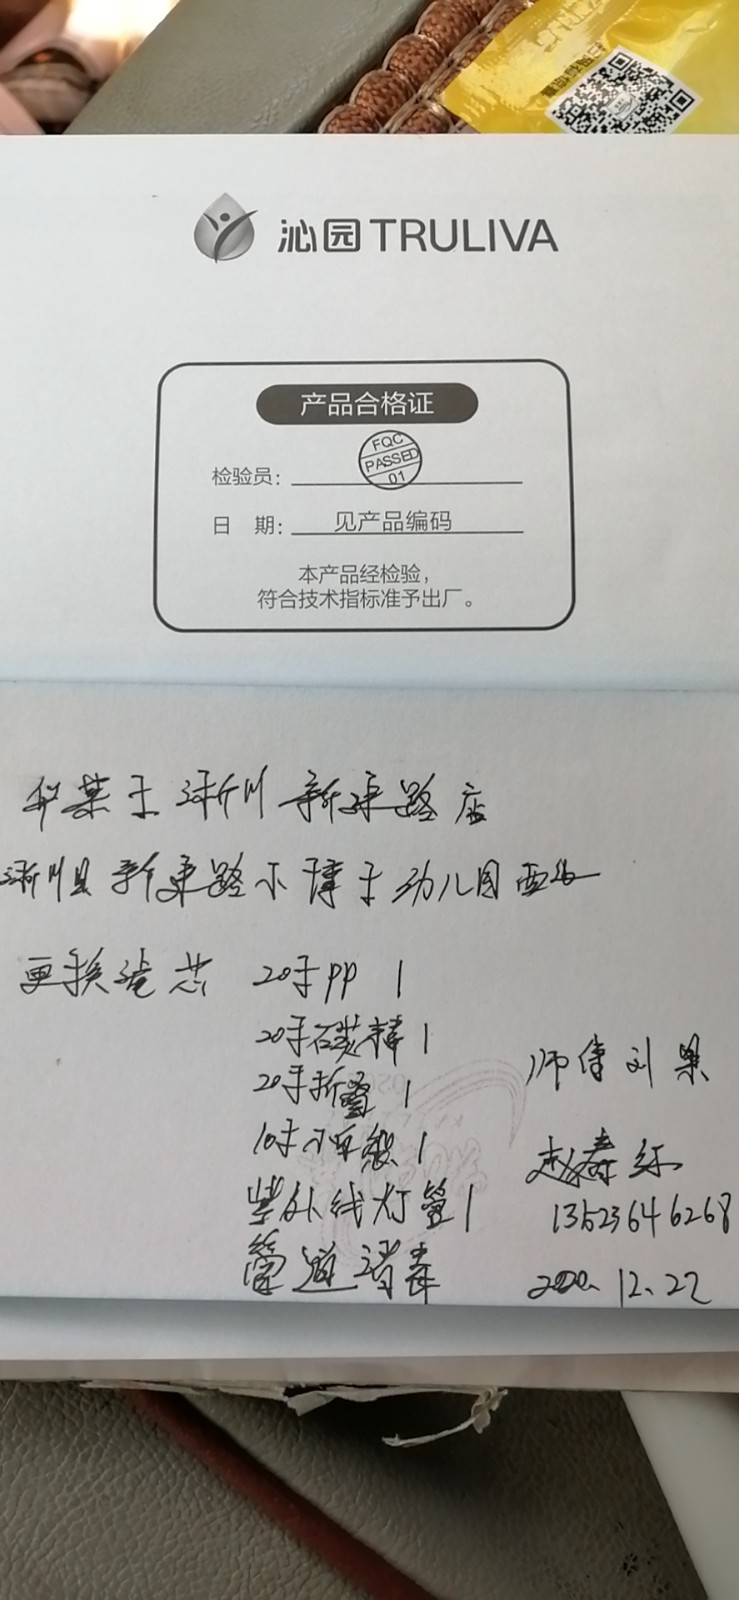 沁园 TRULIVA
产品合格证
FQC
PASSED
01
检验员:
日 期: 见产品编码
本产品经检验,
符合技术指标准予出厂。
华莱士 淅川 新建路店
淅川县 新建路小博士幼儿园西
更换滤芯 20寸PP 1
20寸碳棒 1
20寸折叠 1
10寸 1
紫外线灯管 1
管道消毒
师傅 刘
赵春
13623646268
2020.12.22